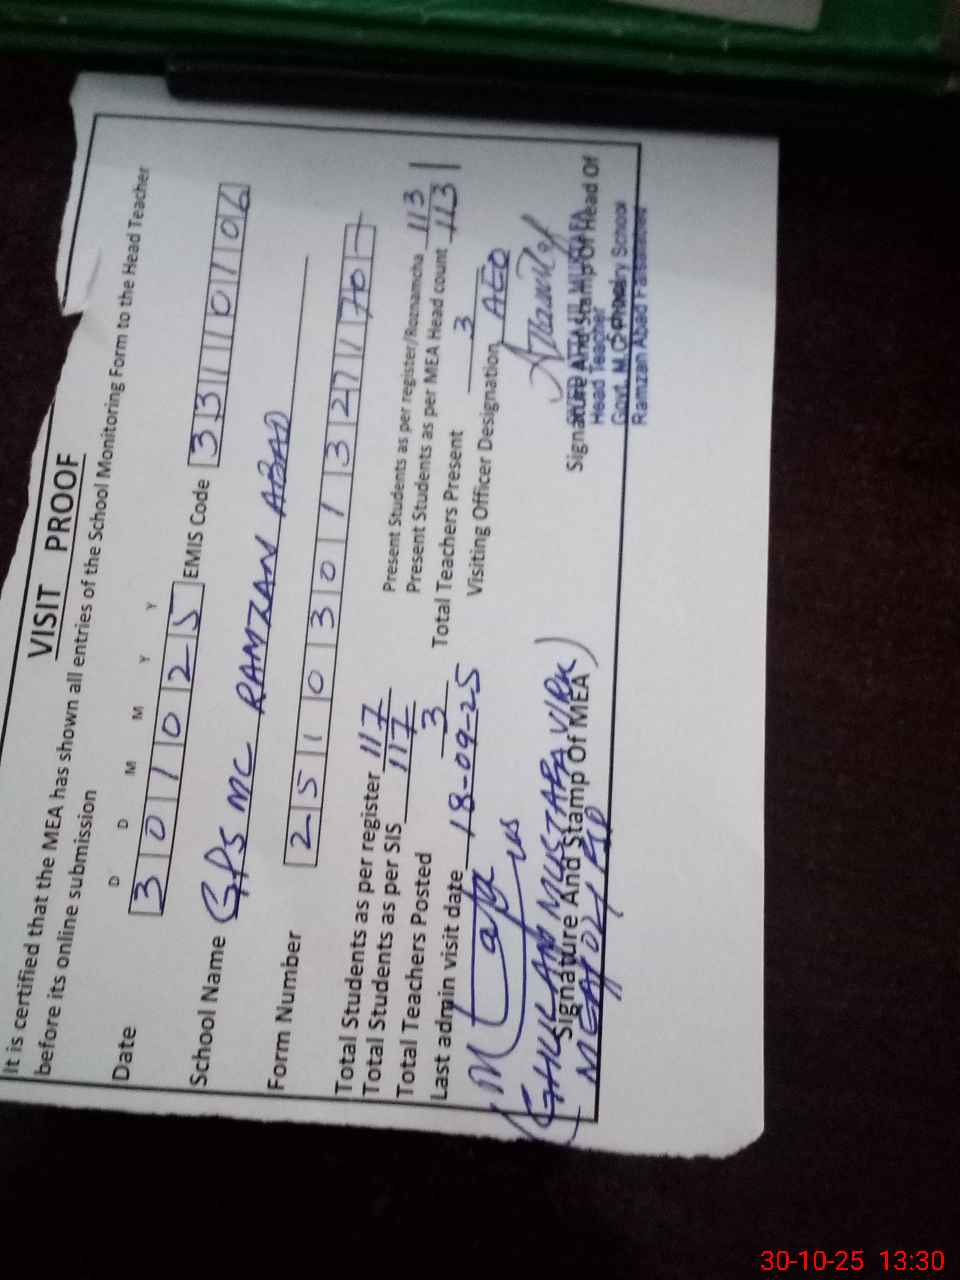 VISIT PROOF
It is certified that the MEA has shown all entries of the School Monitoring Form to the Head Teacher
before its online submission
D D M M Y Y
Date 3 0 1 0 2 5 EMIS Code 3 3 1 1 0 1 0 6
School Name GPS MC RAMZAN ABAD
Form Number 2 5 1 0 3 0 1 3 2 7 1 7 0
Total Students as per register 117 Present Students as per register/Roznamcha 113
Total Students as per SIS 117 Present Students as per MEA Head count 113
Total Teachers Posted 3 Total Teachers Present 3
Last admin visit date 18-09-25 Visiting Officer Designation AEO
(GHULAM MUSTAFA VIRK)
Signature And Stamp Of MEA Signature And Stamp Of Head Of
Head Teacher
Govt. M.C. Primary School
Ramzan Abad Faisalabad
30-10-25 13:30